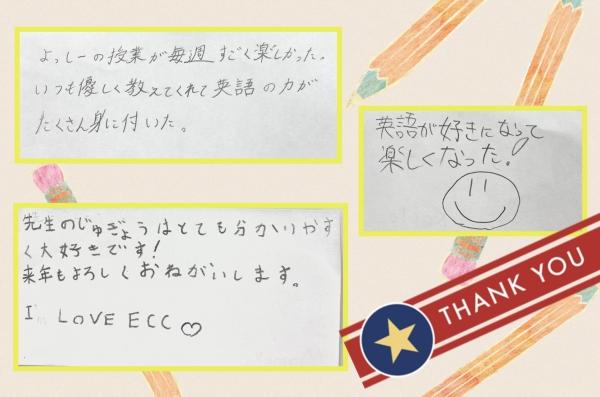 よっしーの授業が毎週すごく楽しかった。
いつも優しく教えてくれて英語の力が
たくさん身に付いた。
英語が好きになって
楽しくなった!
先生のじゅぎょうはとても分かりやす
く大好きです!
来年もよろしくおねがいします。
I'm LOVE ECC♡
THANK YOU